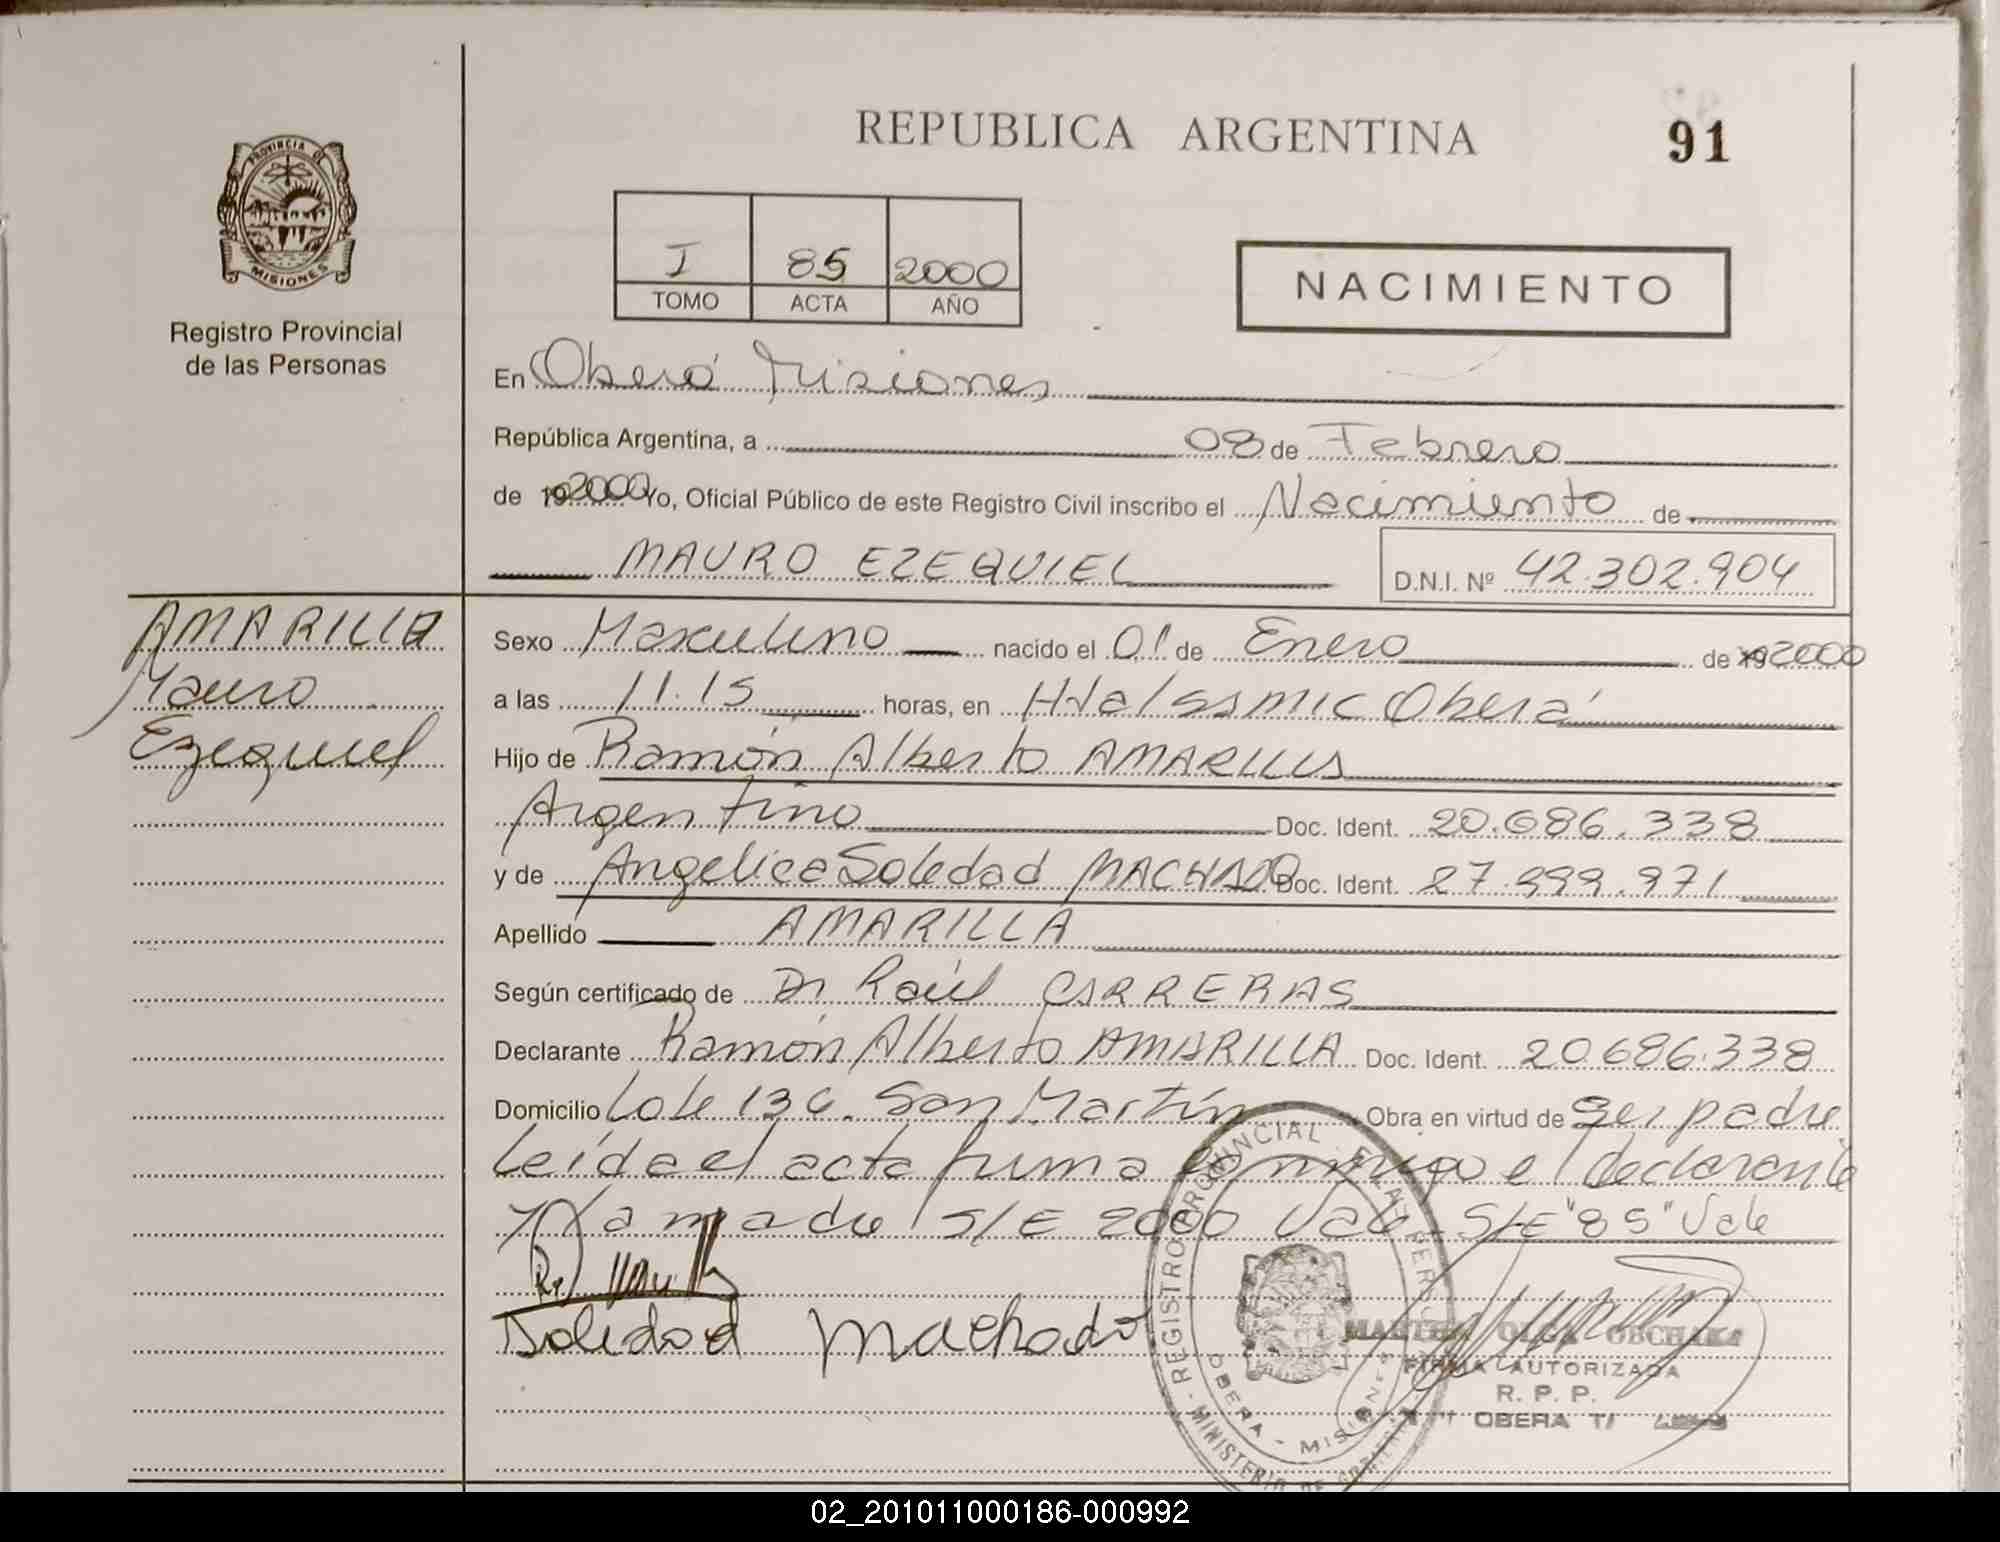 PROVINCIA DE
MISIONES
Registro Provincial
de las Personas
REPUBLICA ARGENTINA
91
I 85 2000
TOMO ACTA AÑO
NACIMIENTO
En Oberá Misiones
República Argentina, a 08 de Febrero
de 192000 Yo, Oficial Público de este Registro Civil inscribo el Nacimiento de
MAURO EZEQUIEL D.N.I. Nº 42.302.904
AMARILLA
Mauro
Ezequiel
Sexo Masculino nacido el 01 de Enero de 192000
a las 11.15 horas, en Oberá
Hijo de Ramón Alberto AMARILLA
Argentino Doc. Ident. 20.686.338
y de Angelica Soledad MACHADO Doc. Ident. 27.999.971
Apellido AMARILLA
Según certificado de Dr Raúl CARRERAS
Declarante Ramón Alberto AMARILLA Doc. Ident. 20.686.338
Domicilio Lote 136. San Martín Obra en virtud de Ser padre
Leída el acta firma conmigo el declarante
y la madre S/E 2000 Vale - S/E "85" Vale
Soledad Machado
REGISTRO PROVINCIAL
OBERA - MISIONES
MINISTERIO DE
OLGA
FIRMA AUTORIZADA
R. P. P.
OBERA
02_201011000186-000992